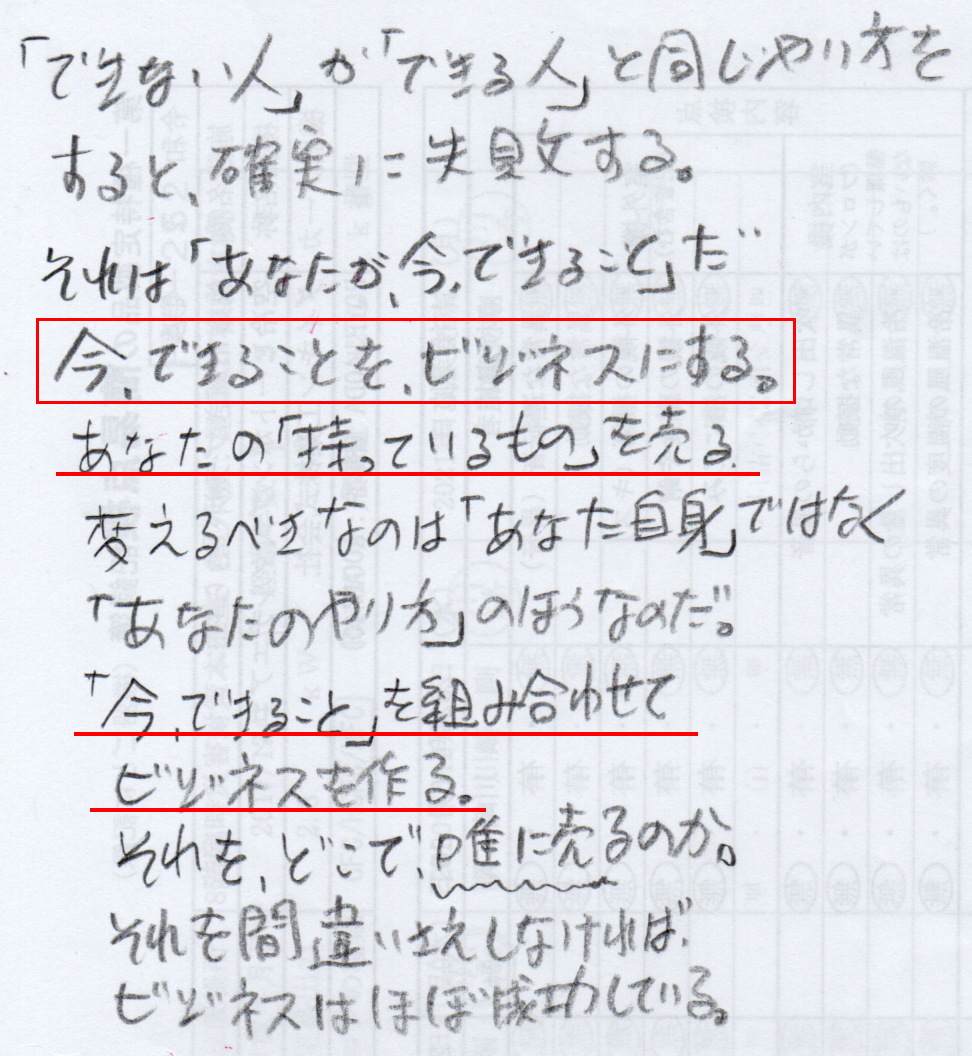 「できない人」が「できる人」と同じやり方を
すると、確実に失敗する。
それは「あなたが、今、できること」だ
今、できることを、ビジネスにする。
あなたの「持っているもの」を売る。
変えるべきなのは「あなた自身」ではなく
「あなたのやり方」のほうなのだ。
「今、できること」を組み合わせて
ビジネスを作る。
それを、どこで、唯に売るのか。
それを間違いさえしなければ、
ビジネスはほぼ成功している。